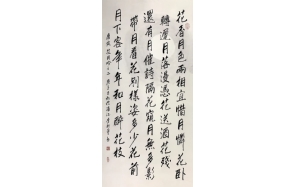 花香月色兩相宜惜月憐花卧
轉遲月落漫憑花送酒花殘
還有月催詩隔花窺月無多影
帶月看花別樣姿多少花前
月下客年年和月醉花枝